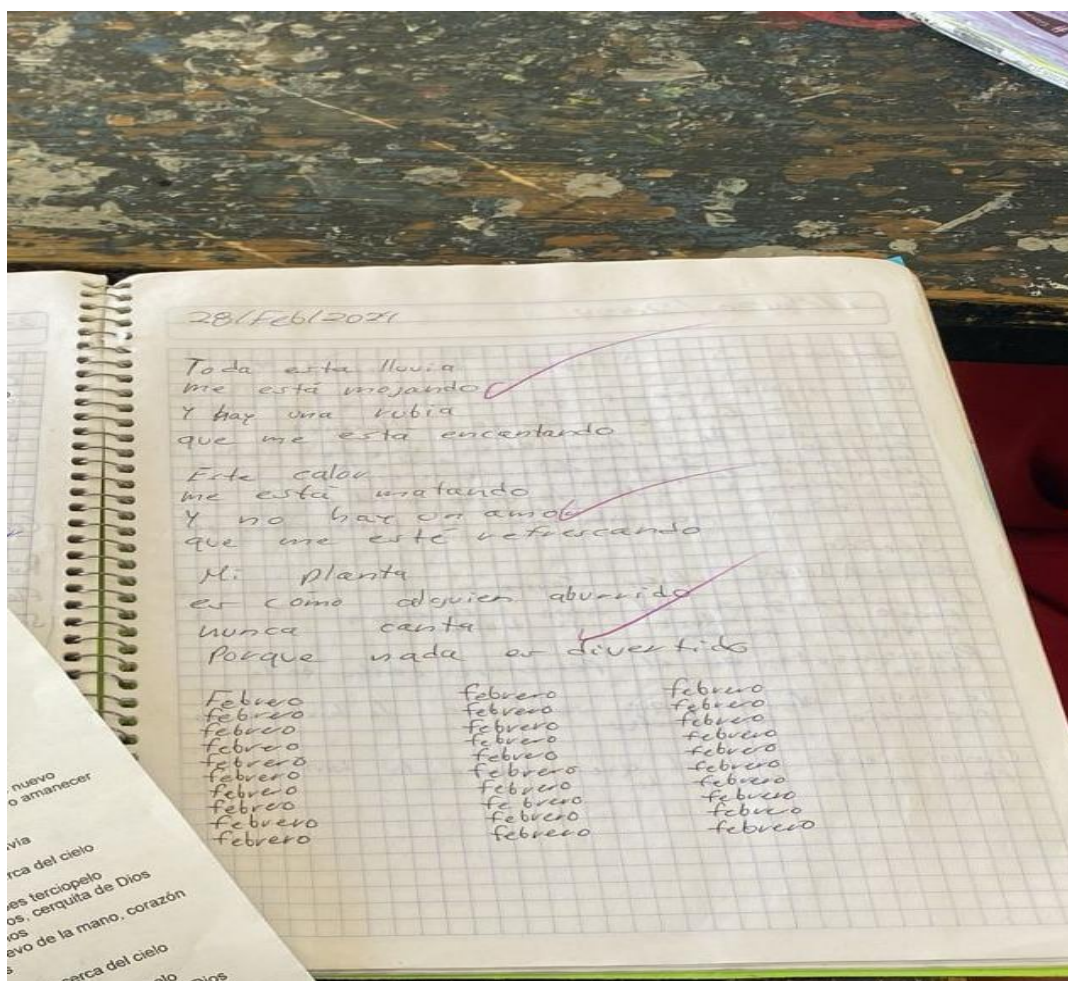 28/Feb/2024
Toda esta lluvia
me está mojando
Y hay una rubia
que me esta encantando
Este calor
me está matando
Y no hay un amor
que me esté refrescando
Mi planta
es como alguien aburrido
nunca canta
Porque nada es divertido
Febrero febrero febrero
febrero febrero febrero
febrero febrero febrero
febrero febrero febrero
febrero febrero febrero
febrero febrero febrero
febrero febrero febrero
febrero febrero febrero
febrero febrero febrero
febrero febrero febrero
nuevo
o amanecer
via
rca del cielo
es terciopelo
os, cerquita de Dios
os
evo de la mano, corazón
s
erca del cielo
elo
Dios